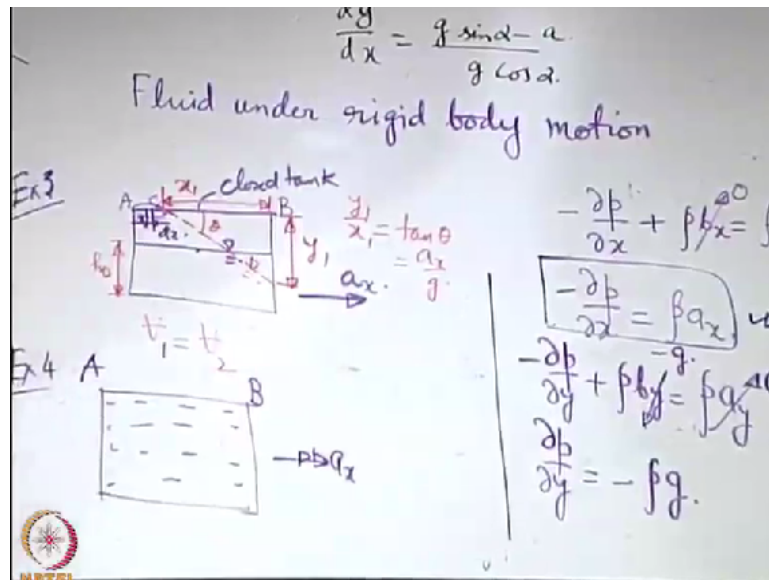 dy/dx = g sinα - a / g cosα.
Fluid under rigid body motion
Ex 3
A x₁ closed tank B
y₁/x₁ = tanθ
= aₓ/g.
θ
y₁
h₀
aₓ.
t₁ = t₂
Ex 4 A
B
aₓ
-∂p/∂x + ρbₓ = ρ
0
-∂p/∂x = ρaₓ
-g.
-∂p/∂y + ρb_y = ρa_y
∂p/∂y = -ρg.
NPTEL